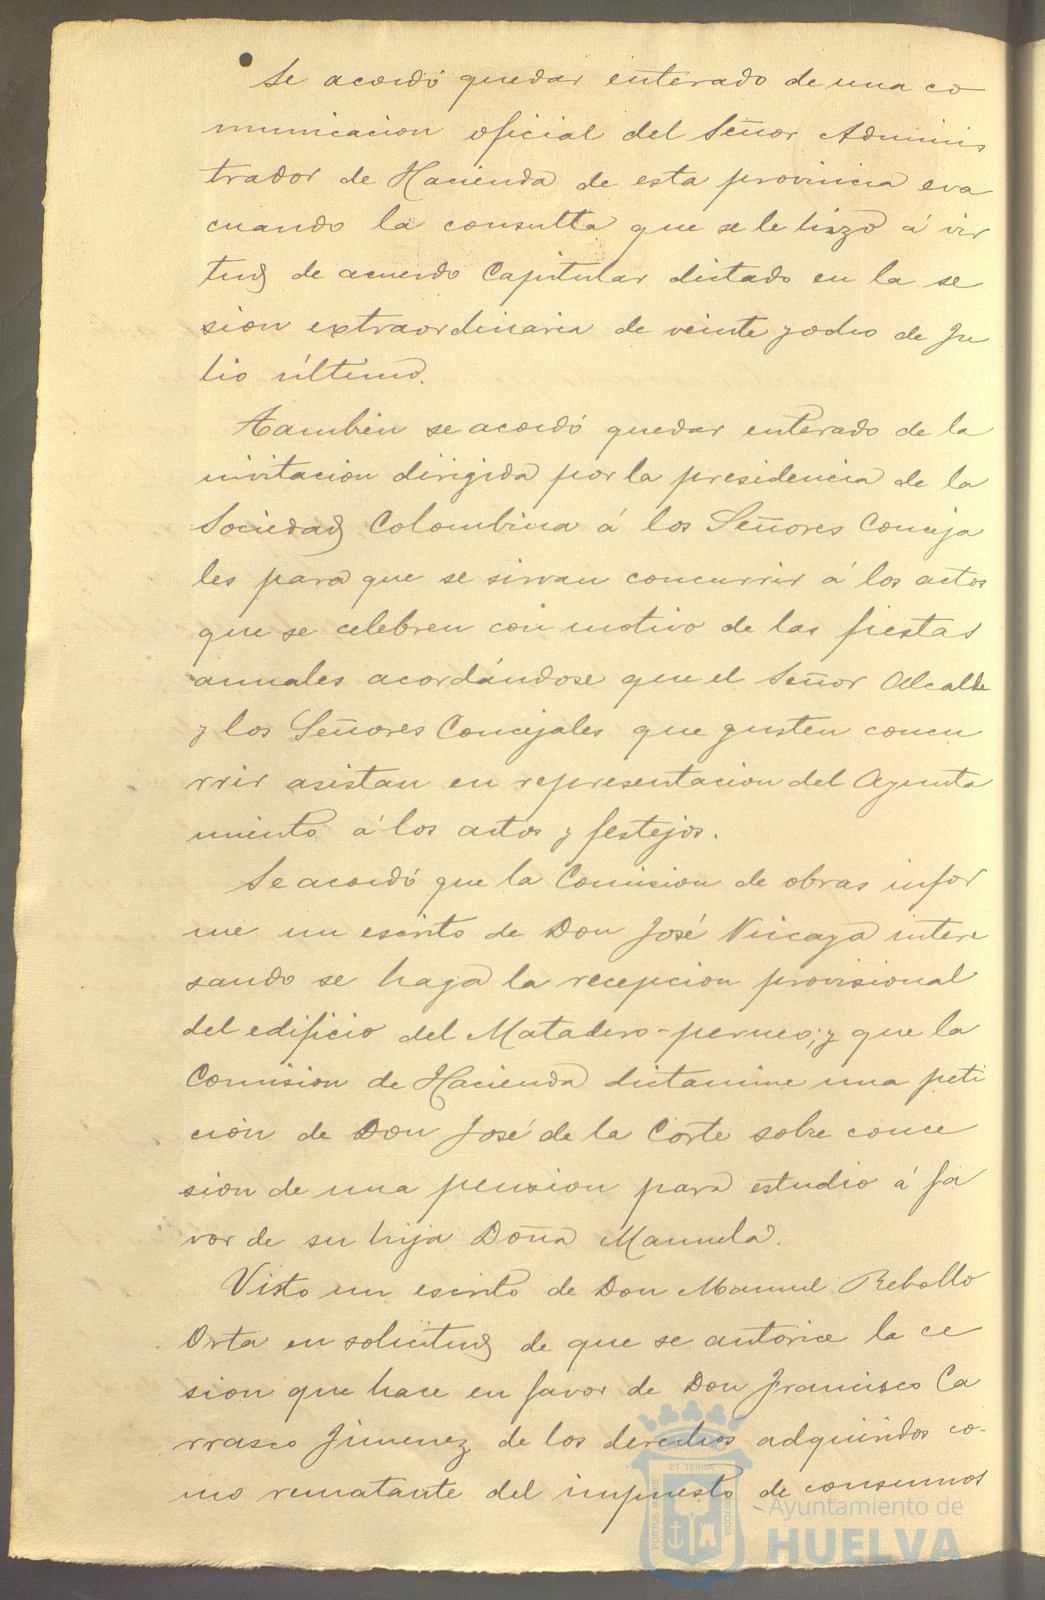 Se acordó quedar enterado de una co
municacion oficial del Señor Adminis
trador de Hacienda de esta provincia eva
cuando la consulta que se le hizo á vir
tud de acuerdo Capitular dictado en la se
sion extraordinaria de veinte y ocho de Ju
lio último.
Tambien se acordó quedar enterado de la
invitacion dirigida por la presidencia de la
Sociedad Colombina á los Señores Conceja
les para que se sirvan concurrir á los actos
que se celebren con motivo de las fiestas
anuales acordándose que el Señor Alcalde
y los Señores Concejales que gusten concu
rrir asistan en representacion del Ayunta
miento á los actos y festejos.
Se acordó que la Comision de obras infor
me un escrito de Don José Vizcaya intere
sando se haga la recepcion provisional
del edificio del Matadero-perneo; y que la
Comision de Hacienda dictamine una peti
ción de Don José de la Corte sobre conce
sion de una pension para estudio á fa
vor de su hija Doña Manuela.
Visto un escrito de Don Manuel Rebollo
Orta en solicitud de que se autorice la ce
sion que hace en favor de Don Francisco Ca
rrasco Jimenez de los derechos adquiridos co-
mo rematante del impuesto de consumos
ET TERRA
PORTUS MARIS
CUSTODIA
Ayuntamiento de
HUELVA